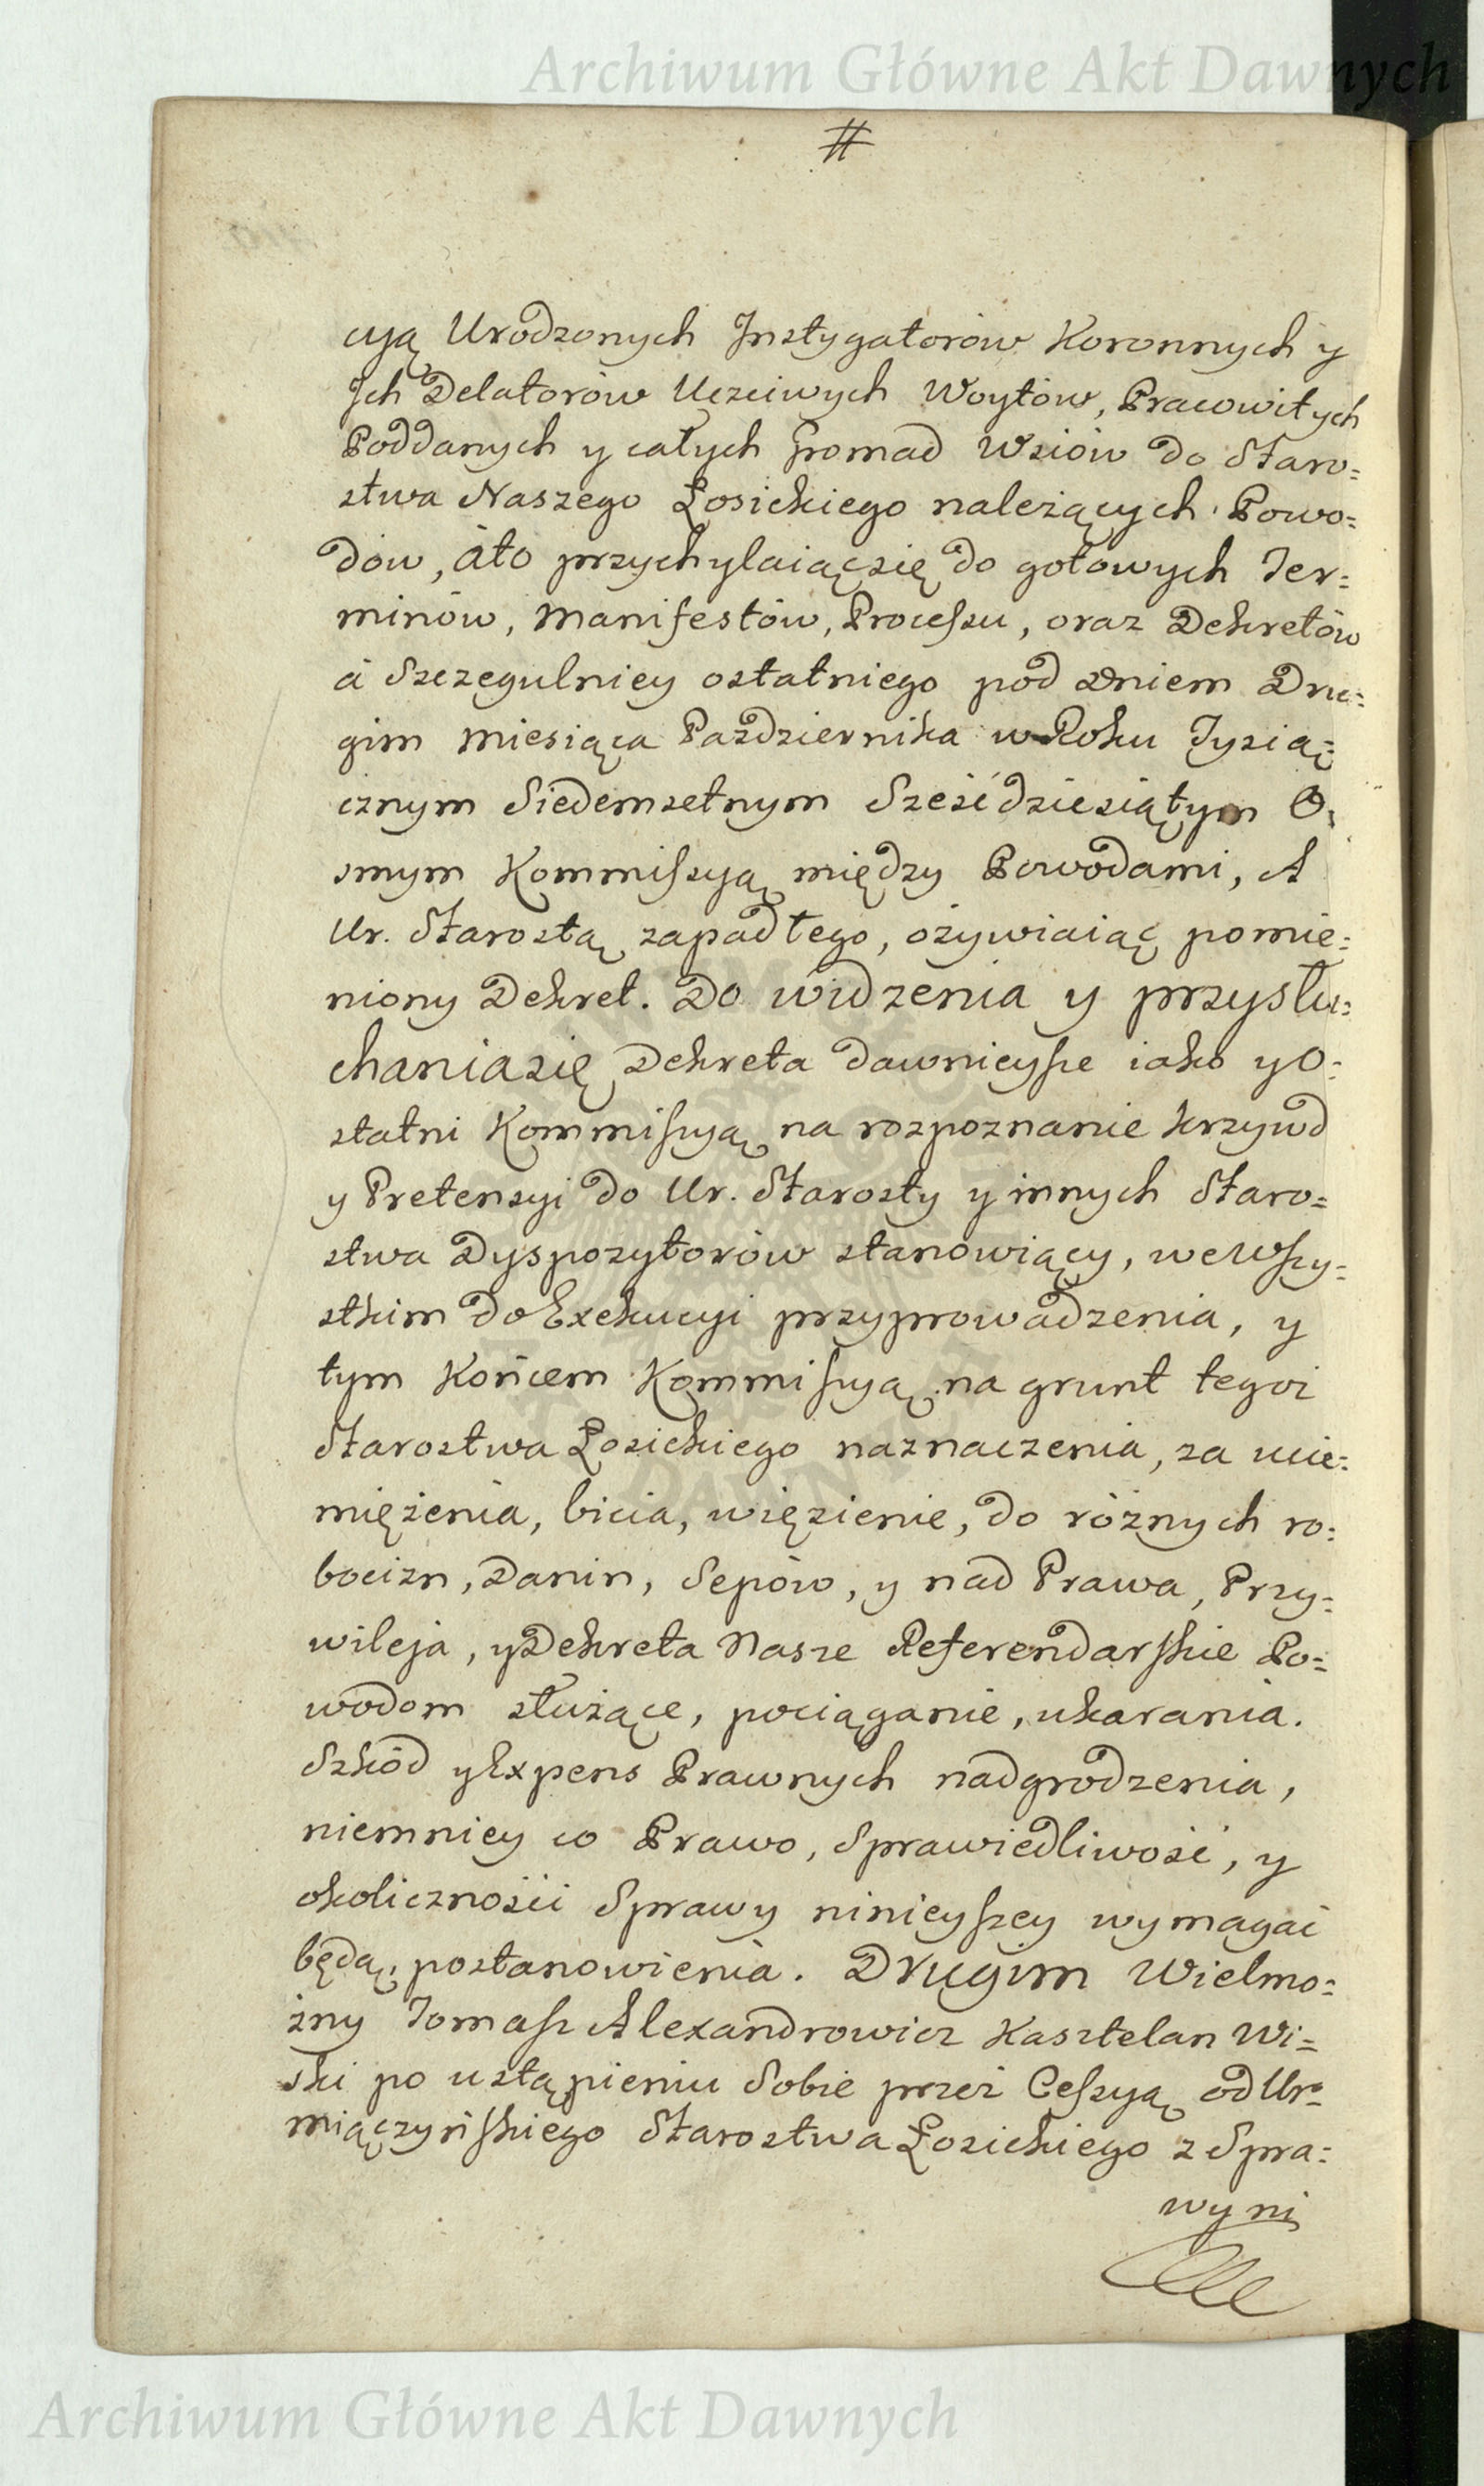 Archiwum Główne Akt Dawnych
#
cyą Urodzonych Instygatorow Koronnych y
Ich Delatorów Uczciwych Woytów, Pracowitych
Poddanych y całych Gromad Wsiów do Staro=
stwa Naszego Łosickiego należących Powo=
dów, áto przychylaiąc się do gotowych Ter=
minów, Manifestów, Processu, oraz Dekretów
á Szczegulniey ostatniego pod Dniem Dru=
gim Miesiąca Pazdziernika w Roku Tysią=
cznym Siedemsetnym Sześćdziesiątym O=
smym Kommissyą między Powodami, A
Ur. Starostą zapadłego, ożywiaiąc pomie=
niony Dekret. Do widzenia y przysłu=
chania się Dekreta dawnieysze iako y O=
statni Kommissyą na rozpoznanie krzywd
y Pretensyi do Ur. Starosty y innych Staro=
stwa Dyspozytorów stanowiący, we Wszy=
stkim do Exekucyi przyprowadzenia, y
tym Końcem Kommissyą na grunt tegoż
Starostwa Łosickiego naznaczenia, za ucie=
miężenia, bicia, więzienie, do różnych ro=
bocizn, Danin, Sepów, y nad Prawa, Przy=
wileja, y Dekreta Nasze Referendarskie Po=
wodom służące, pociąganie, ukarania.
Szkód y Expens Prawnych nadgrodzenia,
niemniey co Prawo, Sprawiedliwość, y
okoliczności Sprawy ninieyszey wymagać
będą, postanowienia. Drugim Wielmo=
żny Tomasz Alexandrowicz Kasztelan Wi=
ski po ustąpieniu Sobie przez Cessyą od Ur.
Miączyńskiego Starostwa Łosickiego z Spra=
wy ni
Archiwum Główne Akt Dawnych